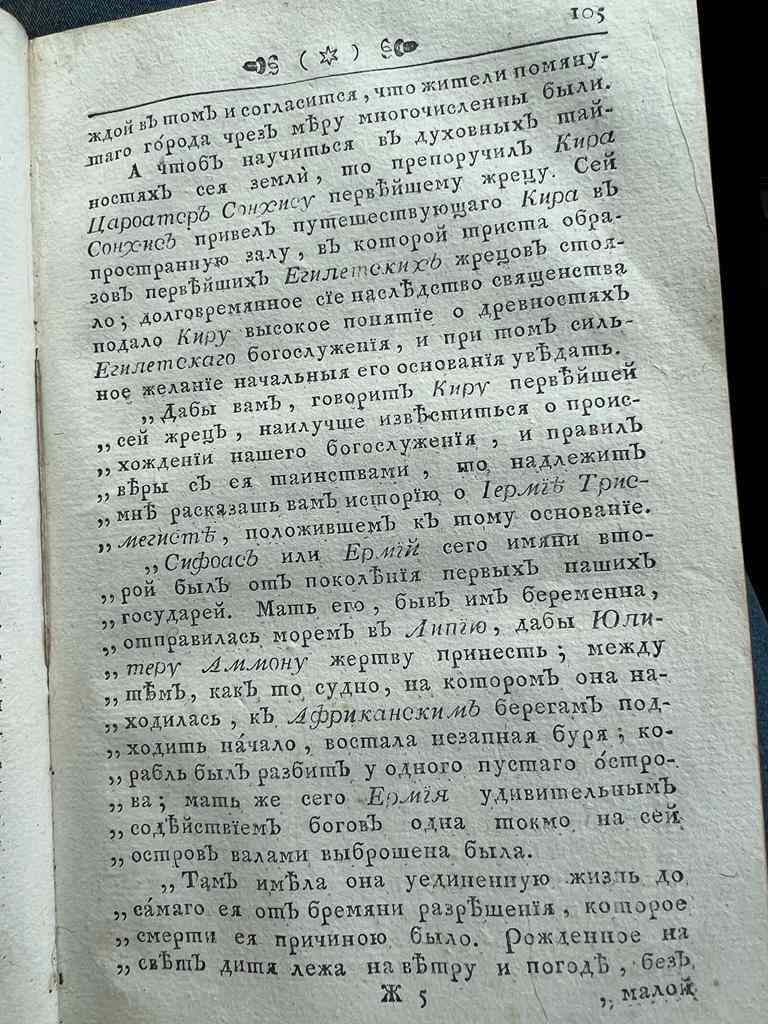 105
( ☆ )
ждой въ томъ и согласится, что жители помяну-
таго го́рода чрезъ мѣру многочисленны были.
А чтобъ научиться въ духовныхъ тай-
ностяхъ сея земли̇, то препоручилъ Кира
Цароатеръ Сонхису первѣйшему жрецу. Сей
Сонхисъ привелъ путешествующаго Кира въ
пространную залу, въ которой триста обра-
зовъ первѣйшихъ Египетскихъ жрецовъ стоя-
ло; долговремянное сїе наслѣдство священства
подало Киру высокое понятїе о древностяхъ
Египетскаго богослуженїя, и при томъ силь-
ное желанїе начальныя его основанїя увѣдать.
„Дабы вамъ, говоритъ Киру первѣйшей
„сей жрецъ, наилучше извѣститься о проис-
„хожденїи нашего богослуженїя, и правилъ
„вѣры съ ея таинствами, то надлежитъ
„мнѣ расказашь вамъ исторїю о Іермїѣ Трис-
„мегистѣ, положившемъ къ тому основанїе.
„Сифоасъ или Ермїй сего имяни вто-
„рой былъ отъ поколѣнїя первыхъ нашихъ
„государей. Мать его, бывъ имъ беременна,
„отправилась моремъ въ Липїю, дабы Юпи-
„теру Аммону жертву принесть; между
„тѣмъ, какъ то судно, на которомъ она на-
„ходилась, къ Африканскимъ берегамъ под-
„ходить на́чало, востала незапная буря; ко-
„рабль былъ разбитъ у одного пустаго о́стро-
„ва; мать же сего Ермїя удивительнымъ
„содѣйствїемъ боговъ одна токмо на сей
„островъ валами выброшена была.
„Тамъ имѣла она уединенную жизнь до
„са́маго ея отъ бремяни разрѣшенїя, которое
„смерти ея причиною было. Рожденное на
„свѣтъ дитя лежа на вѣтру и погодѣ, безъ
Ж 5
„малой